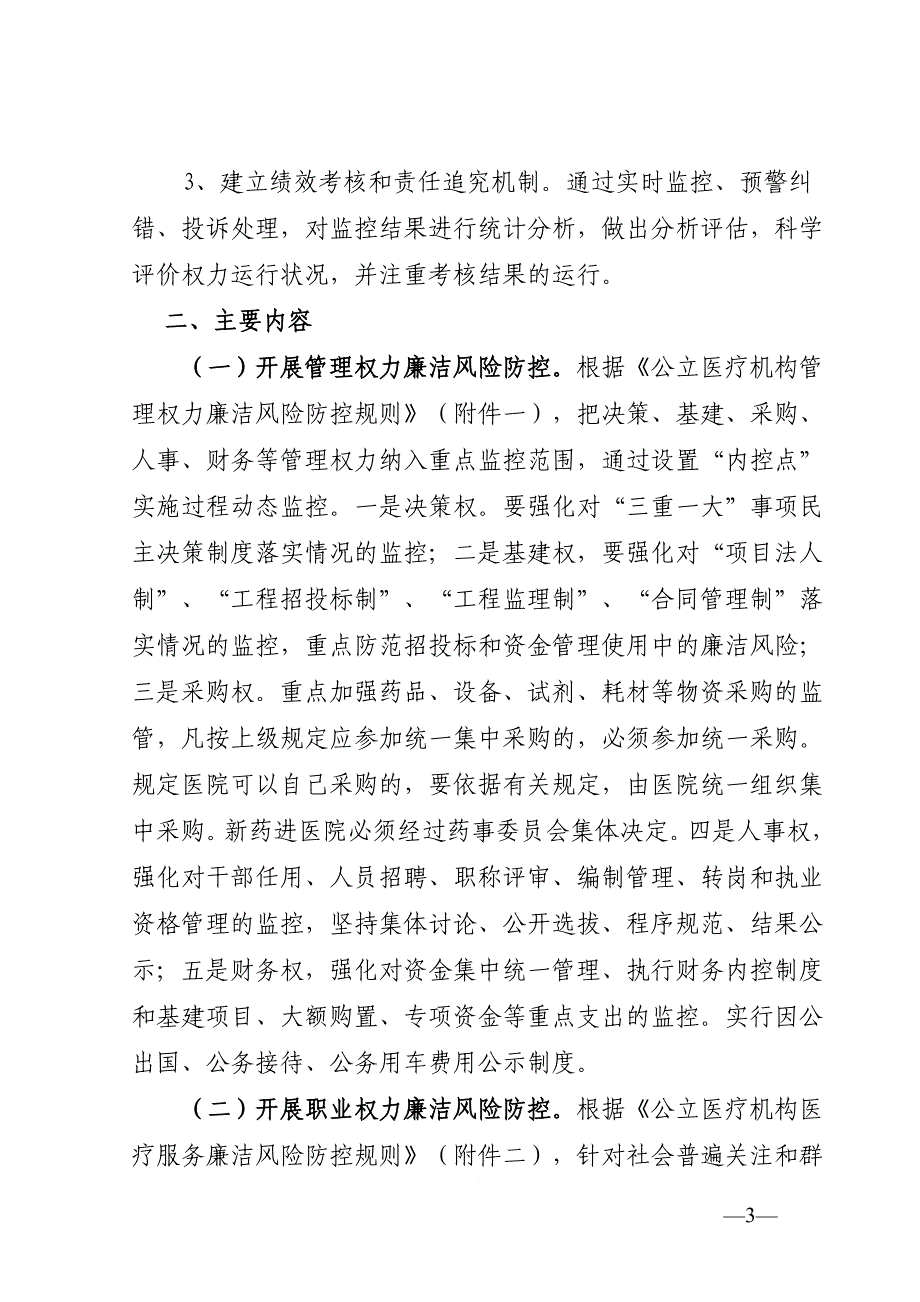 3、建立绩效考核和责任追究机制。通过实时监控、预警纠
错、投诉处理，对监控结果进行统计分析，做出分析评估，科学
评价权力运行状况，并注重考核结果的运行。
二、主要内容
（一）开展管理权力廉洁风险防控。根据《公立医疗机构管
理权力廉洁风险防控规则》（附件一），把决策、基建、采购、
人事、财务等管理权力纳入重点监控范围，通过设置“内控点”
实施过程动态监控。一是决策权。要强化对“三重一大”事项民
主决策制度落实情况的监控；二是基建权，要强化对“项目法人
制”、“工程招投标制”、“工程监理制”、“合同管理制”落
实情况的监控，重点防范招投标和资金管理使用中的廉洁风险；
三是采购权。重点加强药品、设备、试剂、耗材等物资采购的监
管，凡按上级规定应参加统一集中采购的，必须参加统一采购。
规定医院可以自己采购的，要依据有关规定，由医院统一组织集
中采购。新药进医院必须经过药事委员会集体决定。四是人事权，
强化对干部任用、人员招聘、职称评审、编制管理、转岗和执业
资格管理的监控，坚持集体讨论、公开选拔、程序规范、结果公
示；五是财务权，强化对资金集中统一管理、执行财务内控制度
和基建项目、大额购置、专项资金等重点支出的监控。实行因公
出国、公务接待、公务用车费用公示制度。
（二）开展职业权力廉洁风险防控。根据《公立医疗机构医
疗服务廉洁风险防控规则》（附件二），针对社会普遍关注和群
—3—